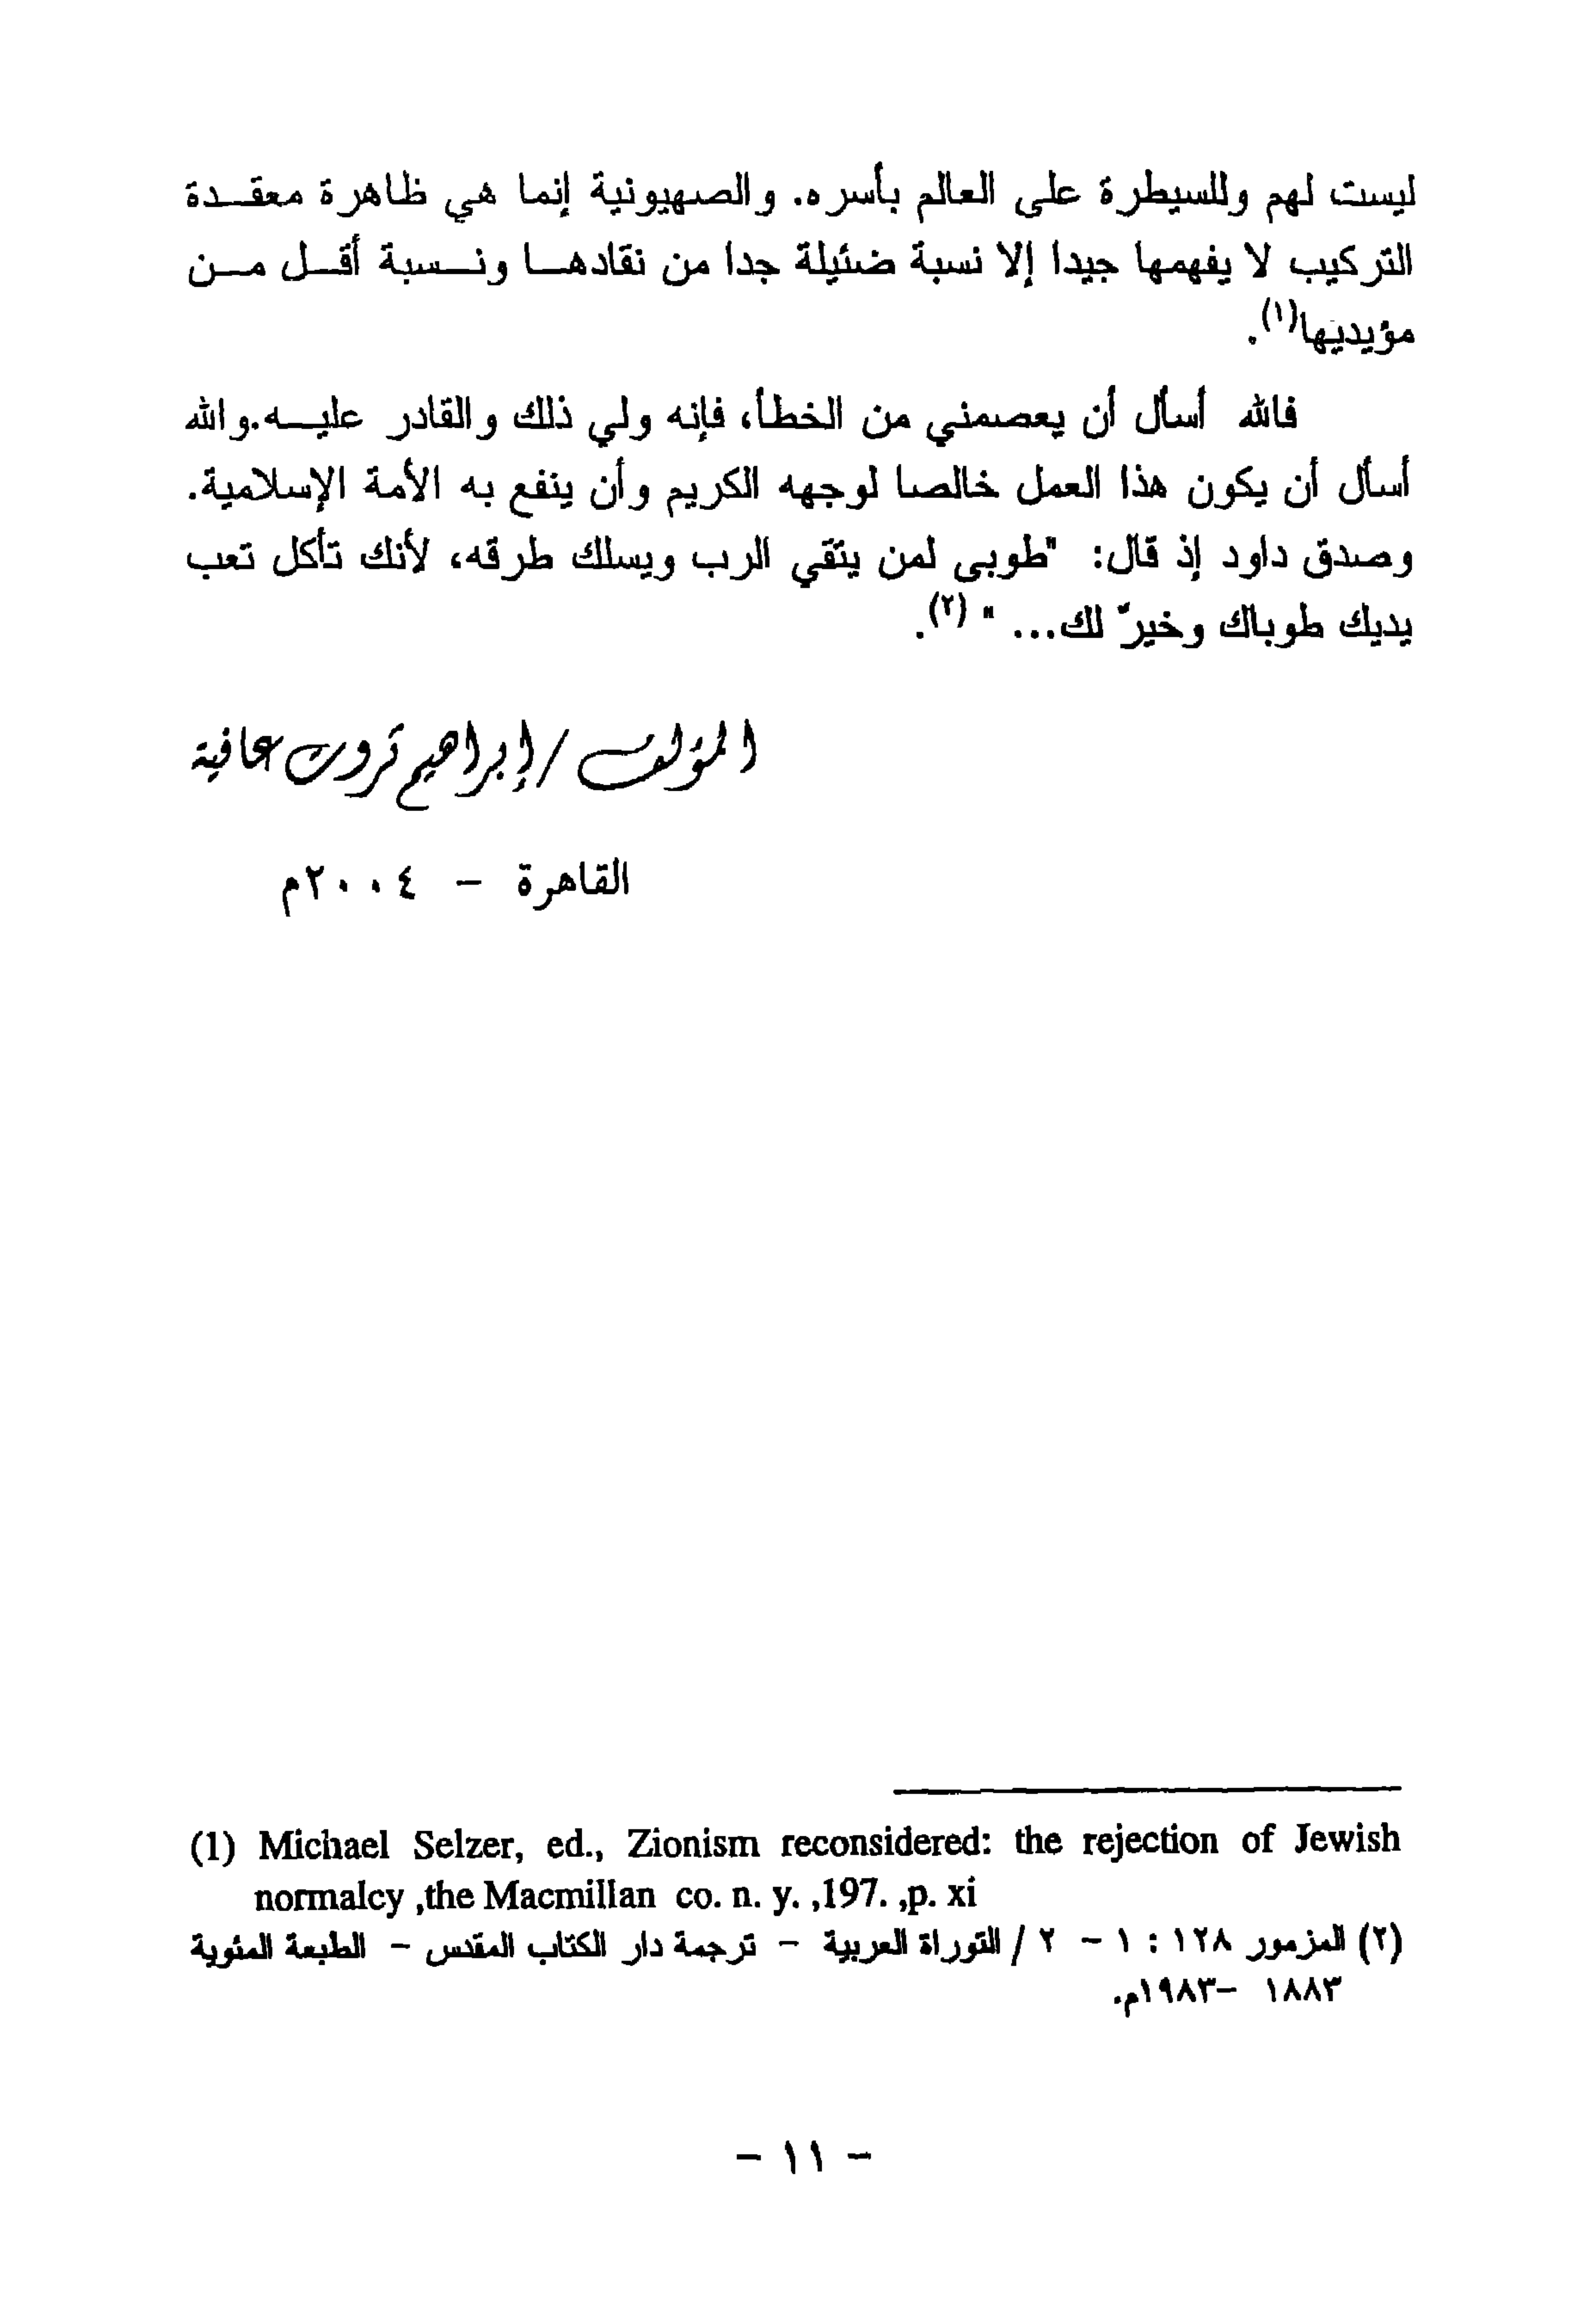 ليست لهم وللسيطرة على العالم بأسره. والصهيونية إنما هي ظاهرة معقدة
التركيب لا يفهمها جيدا إلا نسبة ضئيلة جدا من نقادها ونسبة أقل من
مؤيديها(١).
فالله أسأل أن يعصمني من الخطأ، فإنه ولي ذلك والقادر عليه.والله
أسأل أن يكون هذا العمل خالصا لوجهه الكريم وأن ينفع به الأمة الإسلامية.
وصدق داود إذ قال: "طوبى لمن يتقي الرب ويسلك طرقه، لأنك تأكل تعب
يديك طوباك وخيرٌ لك... " (٢).
المؤلف/إبراهيم ثروت عافية
القاهرة - ٢٠٠٤م
(1) Michael Selzer, ed., Zionism reconsidered: the rejection of Jewish
normalcy ,the Macmillan co. n. y. ,197. ,p. xi
(٢) المزمور ١٢٨ : ١ - ٢ / التوراة العربية - ترجمة دار الكتاب المقدس - الطبعة المئوية
١٨٨٣ -١٩٨٣م.
- ١١ -